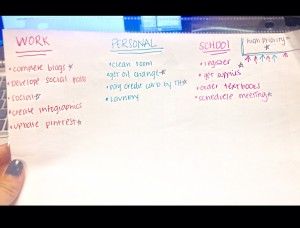 WORK
• complete blogs ☆
• develope social posts
• social ☆
• create infographics
• update pintrest ☆
PERSONAL
• clean room
• get oil change ☆
• pay credit card by TH ☆
• laundry
SCHOOL
• register ☆
• get
• order textbooks
• schedule meeting ☆
high priority